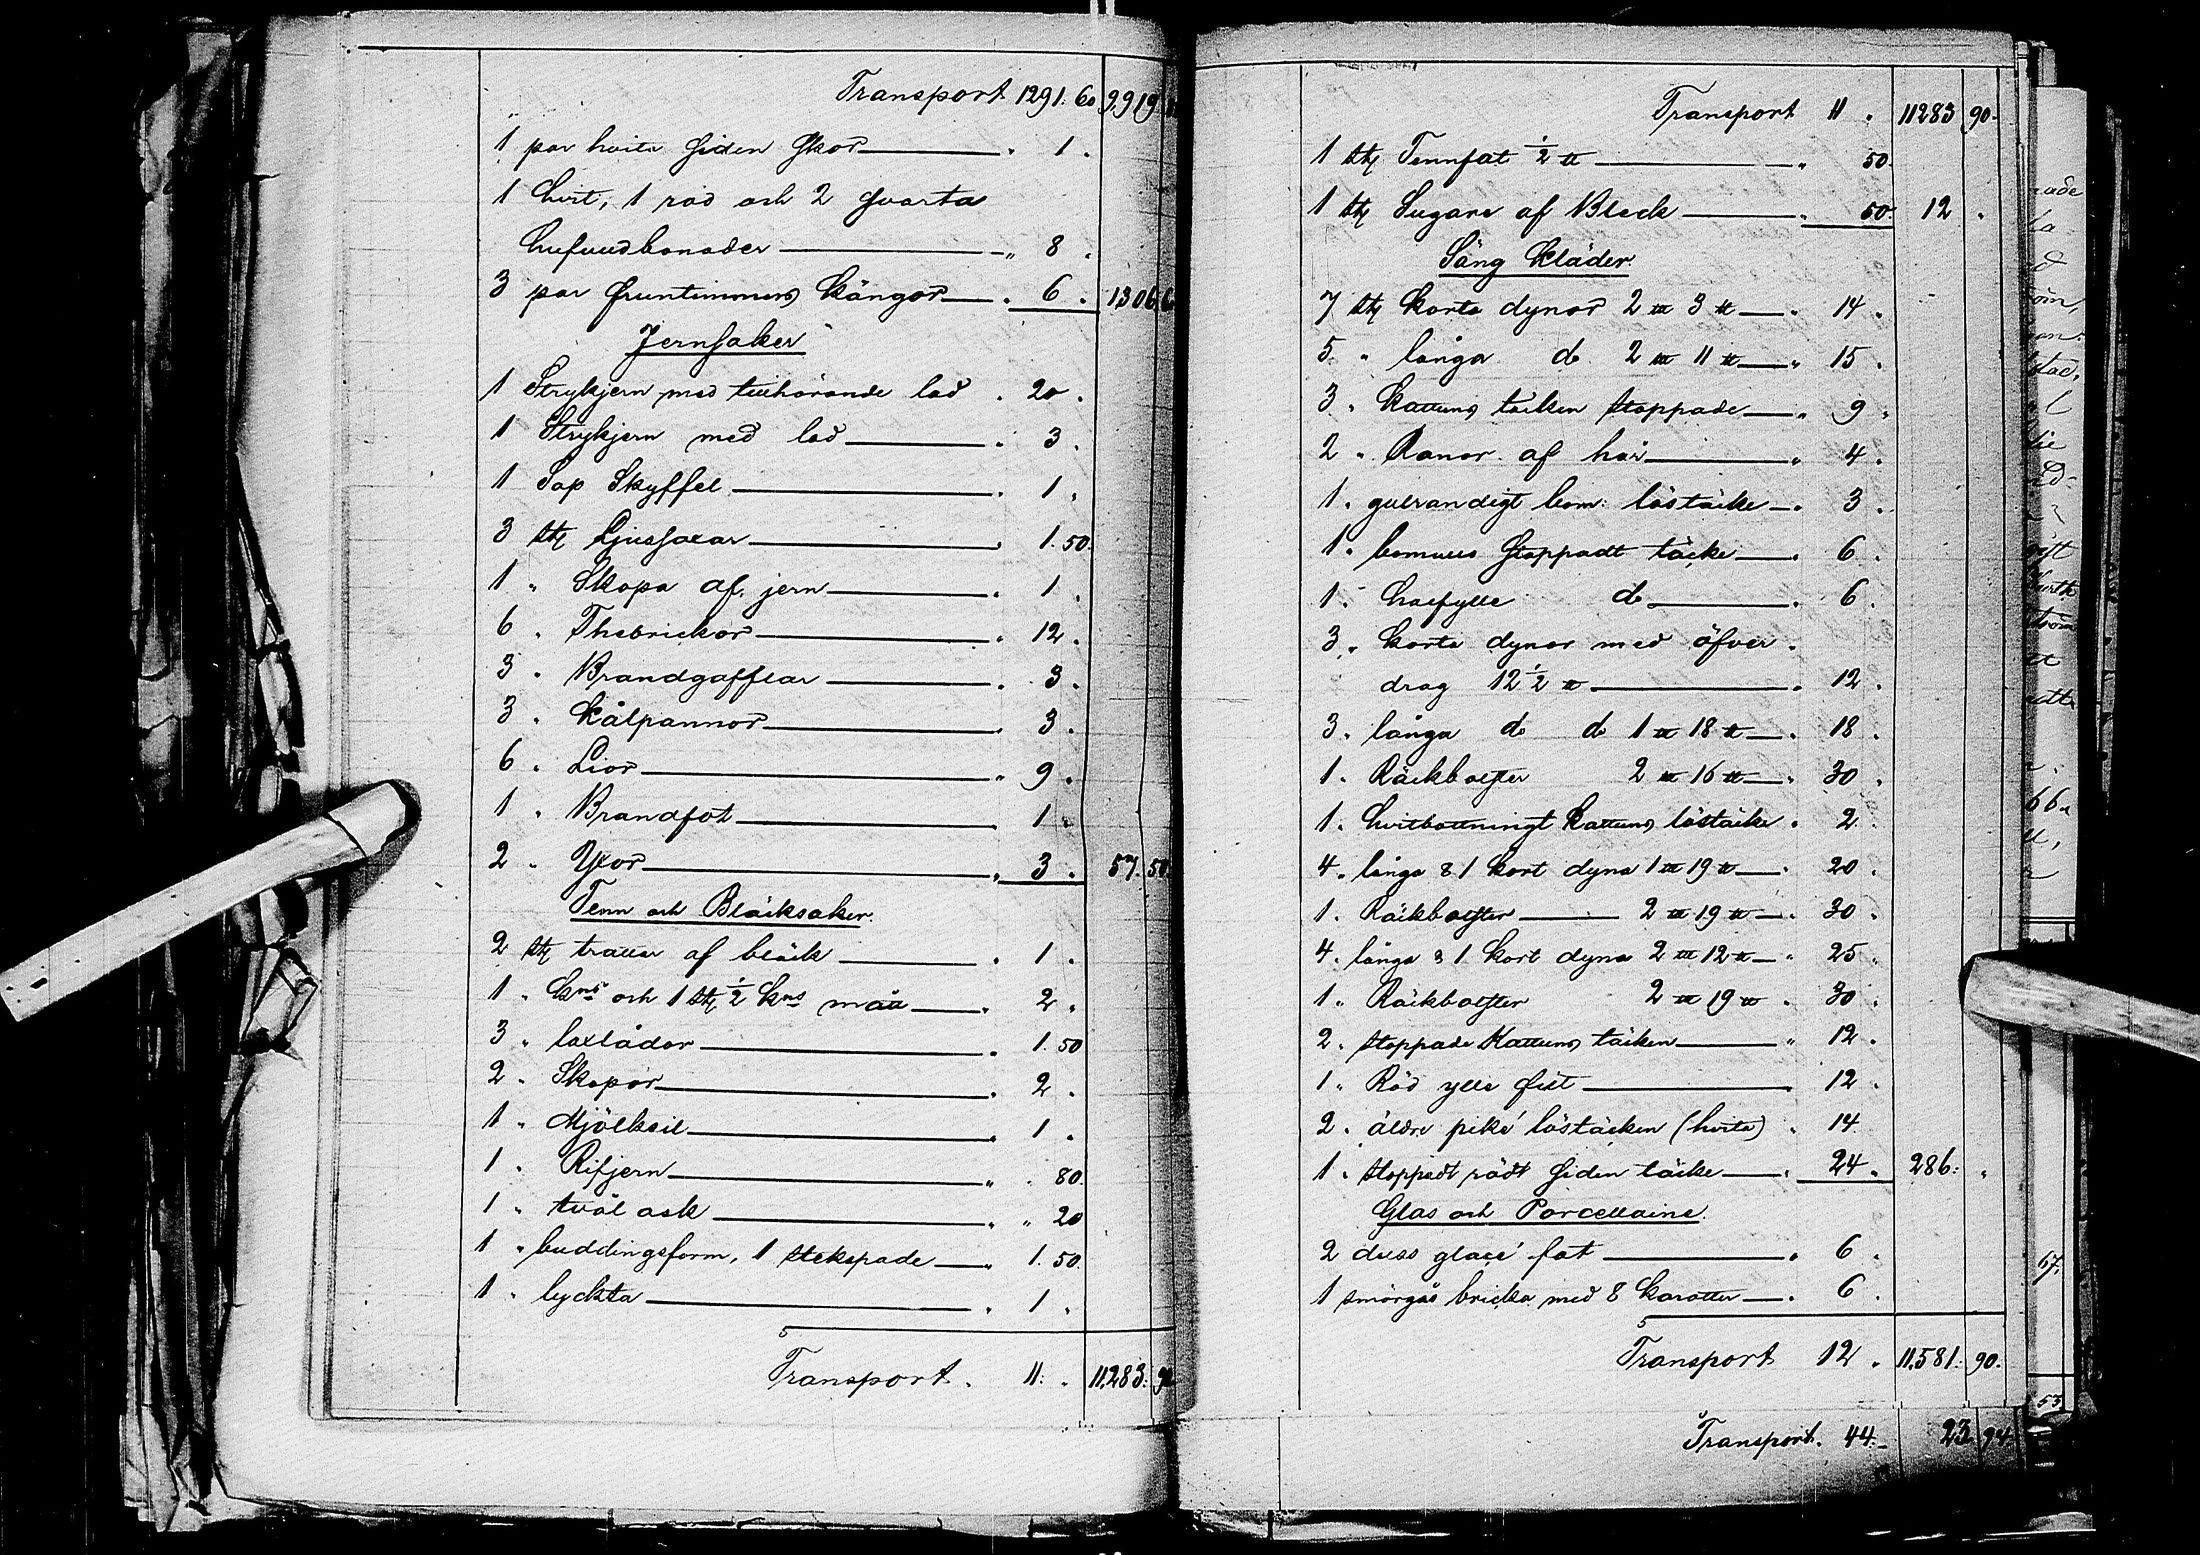 Transport 1291. 60 9919.
1 par hvita Siden Skor — " 1 "
1 hvit, 1 röd och 2 Svarta
hufvudbonader — " 8 "
3 par fruntimmers Kängor — " 6 " 1306. 6
Jernsaker
1 Strykjern med tillhörande lod " 20 "
1 Strykjern med lod — " 3 "
1 Sop Skyffel — " 1 "
3 stk Ljussaxar — " 1. 50
1 " Skopa af jern — " 1 "
6 " Thebrickor — " 12 "
3 " Brandgafflar — " 3 "
3 " Kålpannor — " 3 "
6 " Lior — " 9 "
1 " Brandfot — " 1 "
2 " Yxor — " 3 " 57. 50
Tenn och Bläcksaker.
2 stk trattar af bläck — " 1 "
1 " Kns och 1 stk ½ Kns mått — " 2 "
3 " laxlådor — " 1. 50
2 " Skopor — " 2 "
1 " Mjölksil — " 1 "
1 " Rifjern — " " 80
1 " tvål ask — " " 20
1 " buddingsform, 1 stekspade — " 1. 50
1 " lyckta — " 1 "
Transport. 11. " 11,283. 90
Transport 11 " 11283 90.
1 stk Tennfat ½ ℔ — " 50.
1 stk Sugare af Bleck — " 50. 12 "
Säng Kläder
7 stk Korta dynor 2 3 ℔ — " 14 "
5 " långa do 2 11 ℔ — " 15 "
3 " Kattuns täcken stoppade — " 9 "
2 " Ranor af hår — " 4 "
1 " gulrandigt bom: löstäcke — " 3 "
1 " bomulls Stoppadt täcke — " 6 "
1 " halfylle do — " 6 "
3 " korta dynor med öfver "
drag 12½ ℔ — " 12 "
3 " långa do do 1 18 ℔ — " 18 "
1 " Räckbolster 2 16 ℔ — " 30 "
1 " hvitbottningt Kattuns löstäcke " 2 "
4 " långa & 1 kort dyna 1 19 ℔ — " 20 "
1 " Räckbolster — 2 19 ℔ — " 30 "
4 " långa & 1 kort dyna 2 12 ℔ — " 25 "
1 " Räckbolster 2 19 ℔ " 30 "
2 " stoppade Kattuns täcken — " 12 "
1 " Röd ylle filt — 12 "
2 " äldre piké löstäcken (hvita) " 14
1 " stoppadt rödt Siden täcke — " 24 " 286. "
Glas och Porcellaine.
2 duss glacé fat — " 6 "
1 smörgås bricka med 8 Karotter — " 6 "
Transport 12 " 11,581. 90.
Transport. 44. 23. 94.